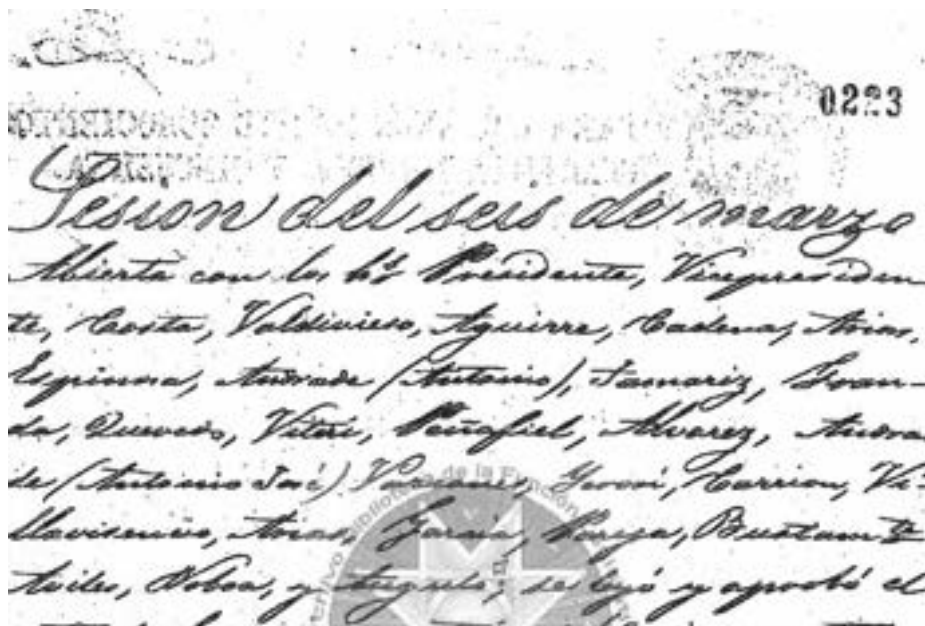 0223
Sesion del seis de marzo
Abierta con los hs. Presidente, Vicepresiden
te, Costa, Valdivieso, Aguirre, Cadena, Arias,
Espinosa, Andrade (Antonio), Tamariz, Gran-
da, Quevedo, Viteri, Peñafiel, Alvarez, Andra
de (Antonio José) Yerovi, Carrion, Vi-
llavisencio, Arias, Garcia, Pareja, Bustamte
Aviles, Noboa, y Angulo, se leyó y aprobó el